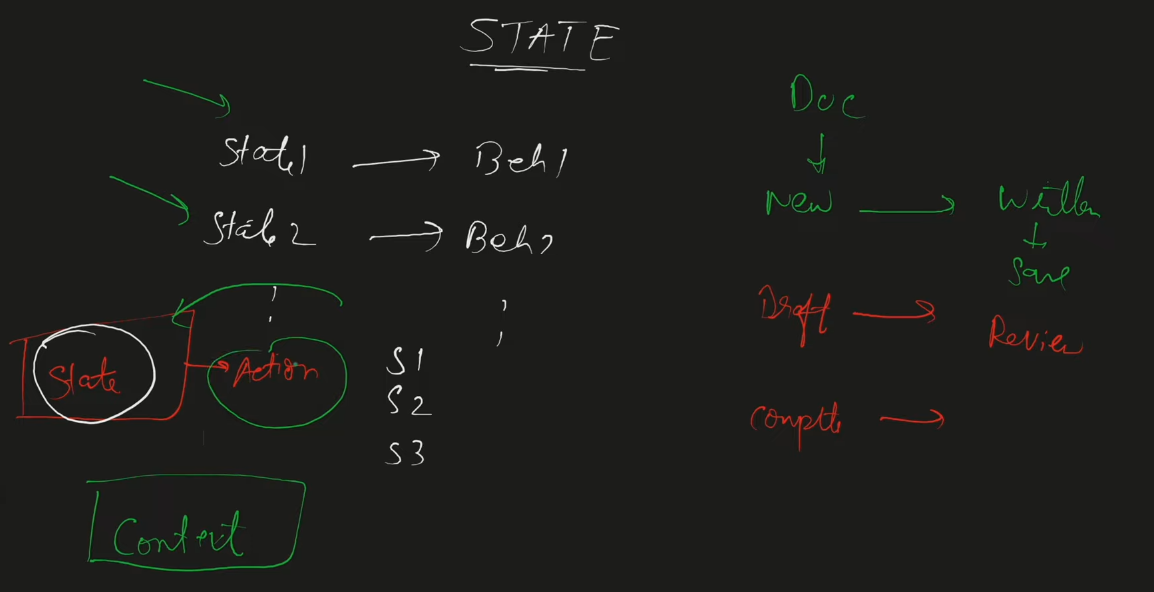 STATE
State1 → Beh1
State2 → Beh2
State → Action
S1
S2
S3
Context
Doc
↓
New → Written
↓
Save
Draft → Review
→